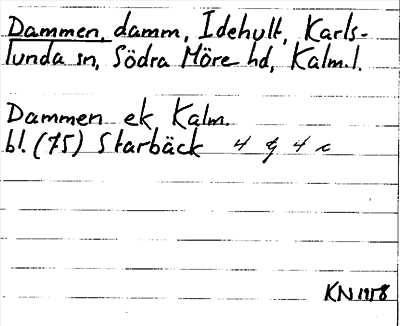 Dammen, damm, Idehult, Karls-
lunda sn, Södra Möre hd, Kalm.l.
Dammen ek Kalm.
bl. (75) Starbäck 4 g 4 c
KN 1958